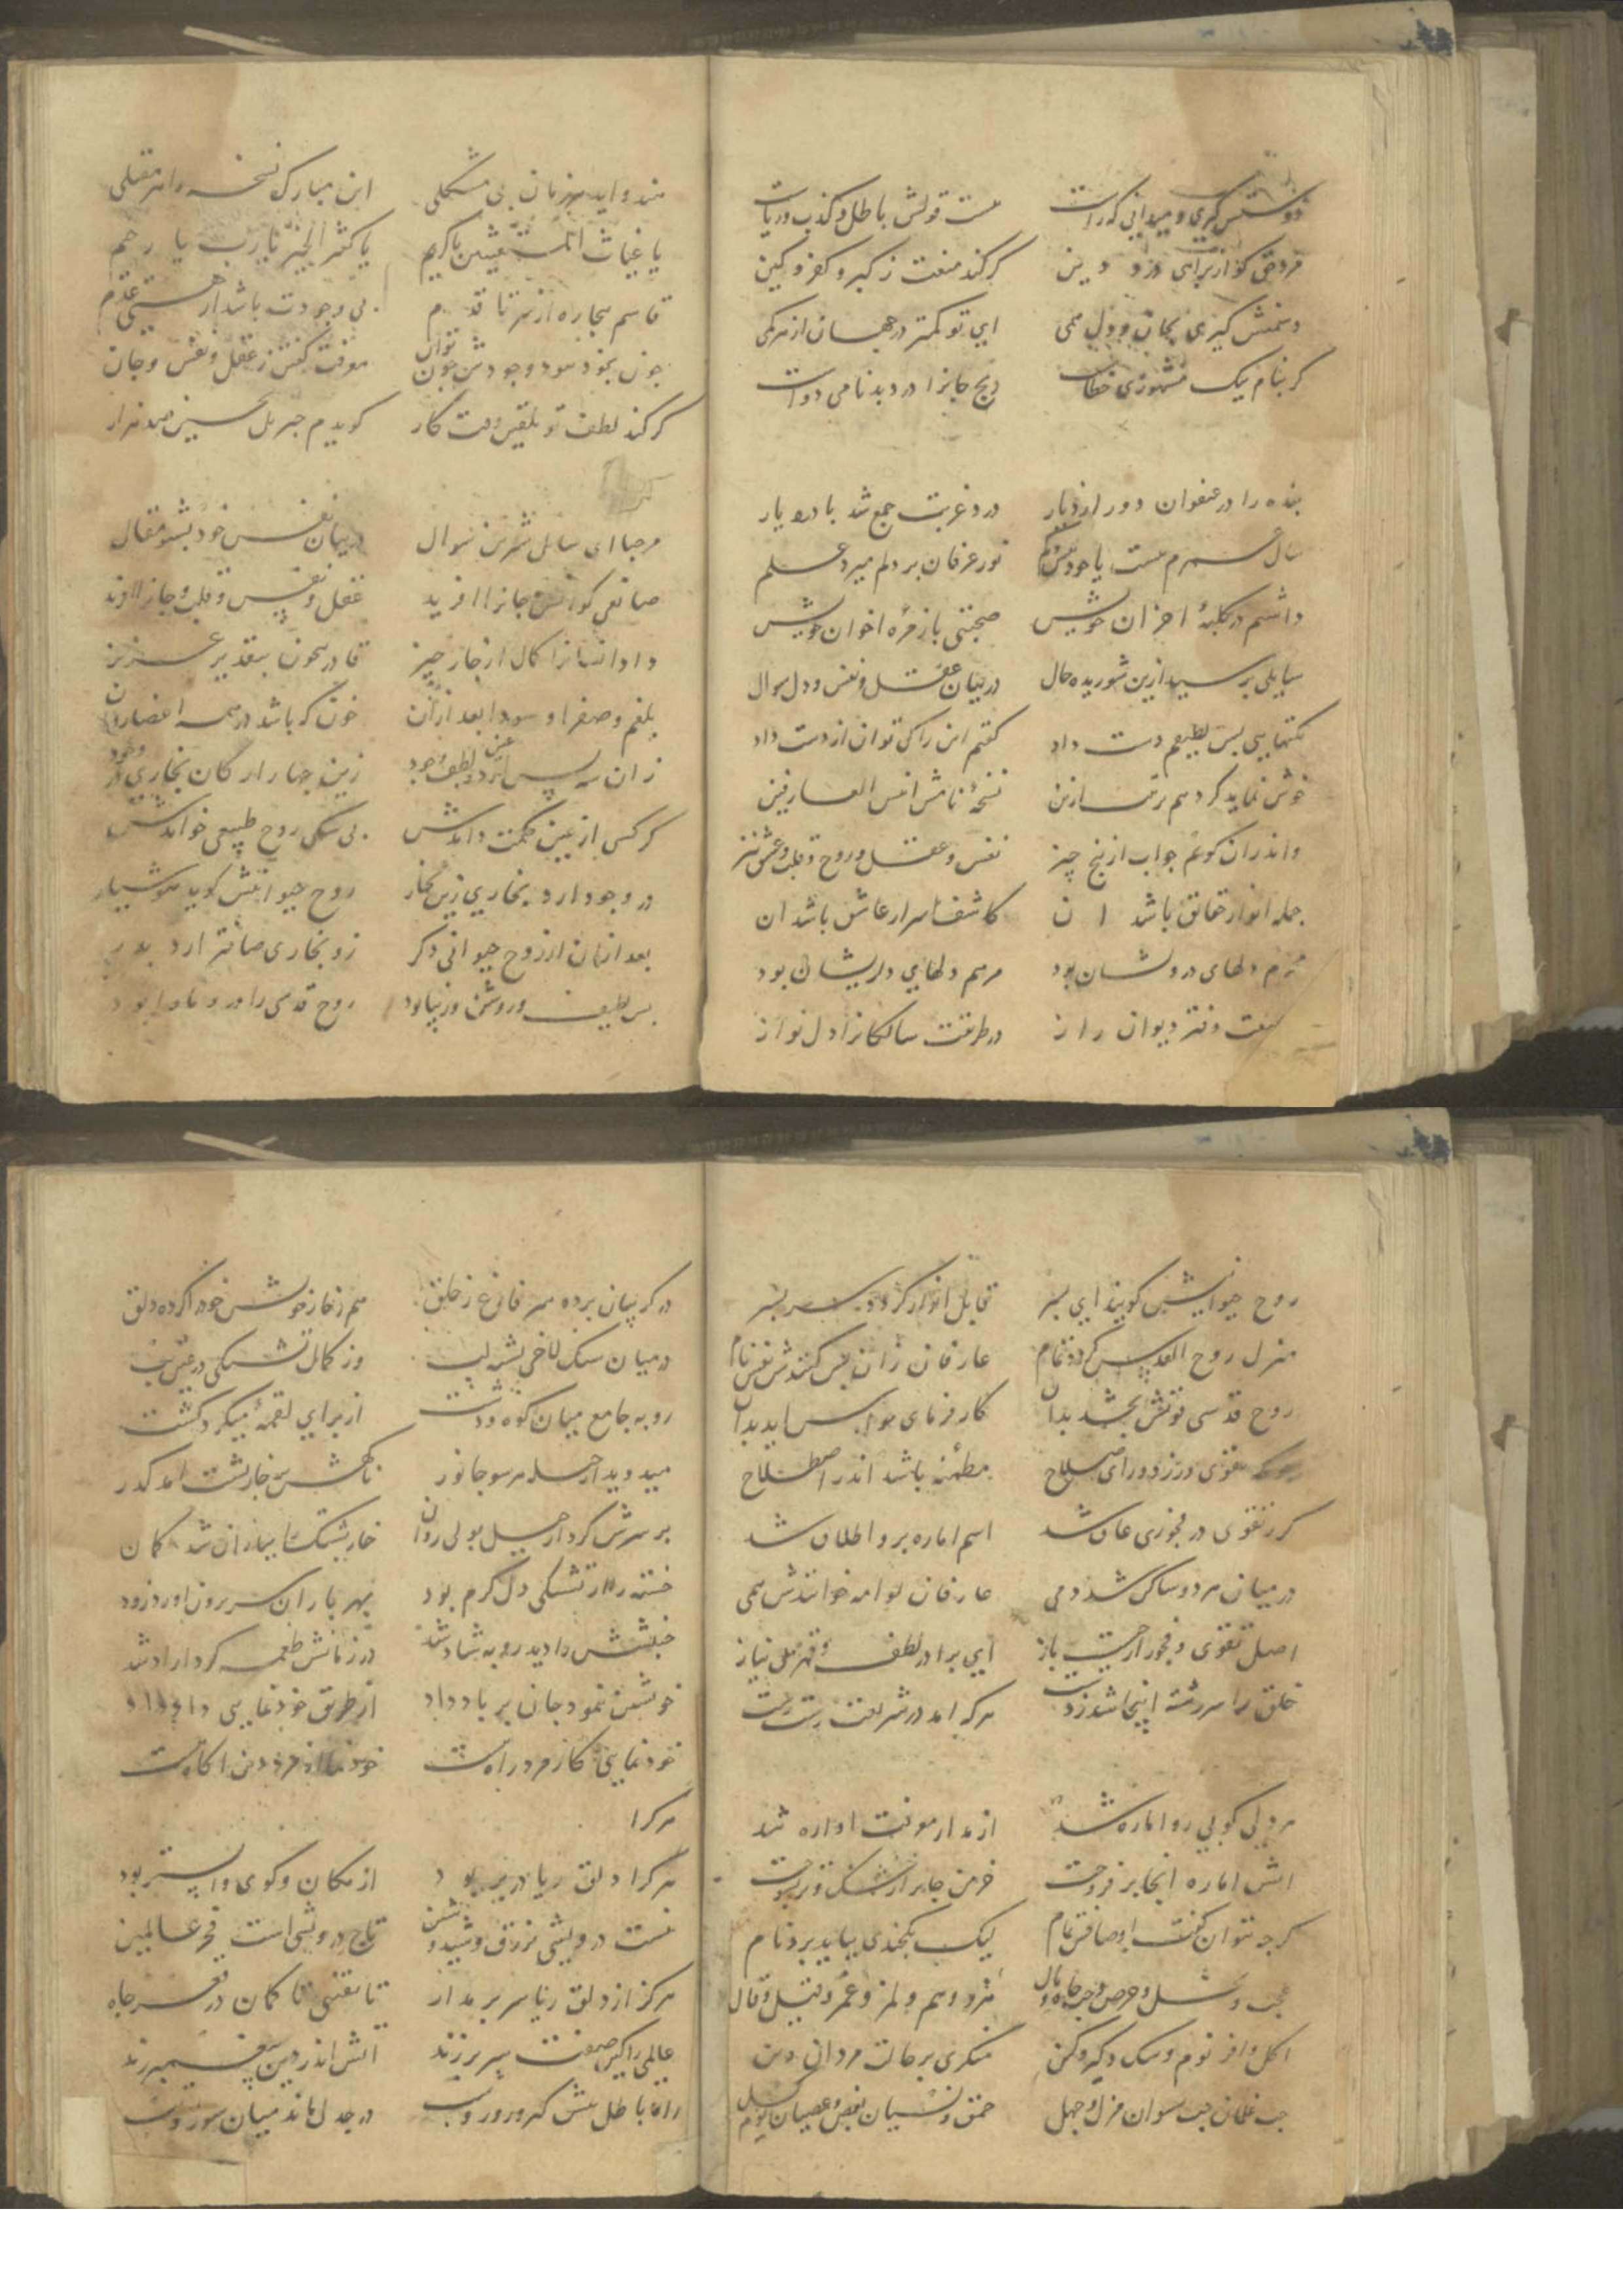 دوستش گیری و میدانی که راست هست قولش باطل و کذب و ریاست
مردقی کو از برای درد دین گر کند منعت ز کبر و کفر و کین
دشمنش گیری بجان و دل همی ای تو کمتر در جهان از هر کمی
گر بنام نیک مشهوری خطاست رنج جانرا درد بدنامی دواست
بنده را در عنفوان دور از دیار درد غربت جمع شد با درد یار
سال عمرم بیست یا خود بیش و کم نور عرفان بر دلم میزد علم
داشتم در کلبهٔ احزان خویش صحبتی با زمرهٔ اخوان خویش
سایلی پرسید ازین شوریده حال در بیان عقل و نفس و دل سوال
نکتهایی بس لطیفم دست داد گفتم این را کی توان از دست داد
خوش نماید کردهم ترتیب ازین نسخهٔ نامش انیس العارفین
واندران گویم جواب از پنج چیز نفس و عقل و روح و قلب و عشق نیز
جمله انوار حقایق باشد ان کاشف اسرار عاشق باشد ان
محرم دلهای درویشان بود مرهم دلهای دلریشان بود
هست دفتر دیوان راز در طریقت سالکانرا دل نواز
این مبارک نسخه را هر مقبلی
یا غیاث المستغیثین یا کریم یا کثیر الخیر یا رب یا رحیم
قاسم بیچاره از سر تا قدم بی وجودت باشد از هستی عدم
چون بخود نبود وجودش چون توان معرفت گفتن ز عقل و نفس و جان
گر کند لطف تو تلقین وقت کار گویدم جبریل تحسین صد هزار
مرحبا ای سایل شیرین سوال در بیان نفس خود بشنو مقال
صانعی کو انس و جانرا افرید عقل و نفس و قلب و جانرا افرید
داد انسانرا کمال از چار چیز قادر بیچون بتقدیر عزیز
بلغم و صفرا و سودا بعد ازان خون که باشد در همه اعضا روان
زان سپس از عین لطف و جود زین چهار ارکان بخاری در وجود
هر کس از عین حکمت داندش بی شکی روح طبیعی خواندش
در وجود ارد بخاری زین بخار روح حیوانیش گوید هوشیار
بعد ازان از روح حیوانی دگر زو بخاری صافتر ارد بدر
بس لطیف و روشن و زیبا بود روح قدسی را درو ماوا بود
روح حیوانیش گویند ای پسر قابل انوار گردد سر بسر
منزل روح القدس گردد تمام عارفان زان پس کنندش نفس نام
روح قدسی قوتش بخشد بدان کار فرمای حواس اید بدان
تقوی ورزد و رای صلاح مطمئنه باشد اندر اصطلاح
گر ز تقوی در فجوری عاق شد اسم اماره برو اطلاق شد
در میان هر دو ساکن شد دمی عارفان لوامه خوانندش همی
اصل تقوی و فجور از چیست باز ای برادر لطف و قهر بی نیاز
خلق را سررشته اینجا شد ز دست هر که امد در شریعت رست رست
هر دلی کو پی رو اماره شد از مدار معرفت اواره شد
اتش اماره انجا بر فروخت خرمن جان از خشک و تر بسوخت
گرچه نتوان گفت اوصافش تمام لیک بکچندی بباید برد نام
عجب و بخل و حرص و حب جاه و مال و هم و لمز و غمز و قیل و قال
اکل وافر نوم و شک و کبر و کین منکری بر حالت مردان دین
حب غلمان حب نسوان هزل و جهل حمق و نسیان بغض و عصیان
در گریبان برده سر فارغ ز خلق هم ز خار خویش خود را کرده دلق
در میان سنگلاخی تشنه لب وز کمال تشنگی در عین تب
روبه جامع میان کوه و دشت از برای لقمهٔ میکرد گشت
میدوید از حیله هر سو جانور ناگهش بر خارپشت امد گذر
بر سرش کرد از حیل بولی روان خارپشتک را بباران شد گمان
خسته را از تشنگی دل گرم بود بهر باران سر برون اورد زود
جنبشش را دید روبه شاد شد در زمانش طعمه کرد ازاد شد
خویشتن نمود جان بر باد داد از طریق خودنمایی داد داد
خودنمایی کار مرد راه نیست خودنما از مرد دین اگاه نیست
هر کرا
هر کرا دلق ریا در بر بود از مکان و کوی واپستر بود
نیست درویشی زرق و شید و شین تاج درویشی است فخر عالمین
هرگز از دلق ریا سر بر مدار تا نیفتی ناگهان در قعر چاه
عالمی را کین صفت سر بر زند اتش اندر دین پیغمبر زند
در جدل ماند میان